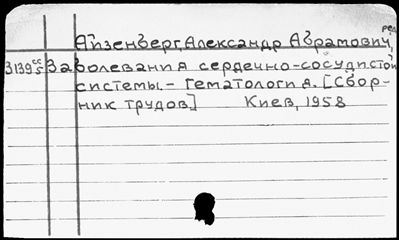 ред.
Айзенберг, Александр Абрамович,
3139 сс/5 Заболевания сердечно-сосудистой
системы. - Гематология. [Сбор-
ник трудов] Киев, 1958